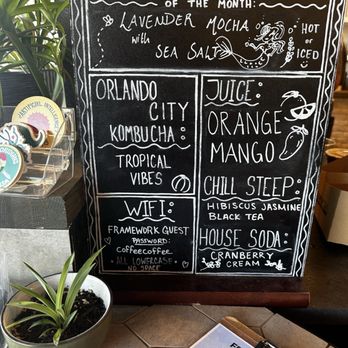 OF THE MONTH:
LAVENDER MOCHA
with
SEA SALT
HOT
or
ICED
ORLANDO
CITY
KOMBUCHA:
TROPICAL
VIBES
WIFI:
FRAMEWORK GUEST
PASSWORD:
coffeecoffee
* ALL LOWERCASE *
NO SPACE
JUICE:
ORANGE
MANGO
CHILL STEEP:
HIBISCUS JASMINE
BLACK TEA
HOUSE SODA:
CRANBERRY
CREAM